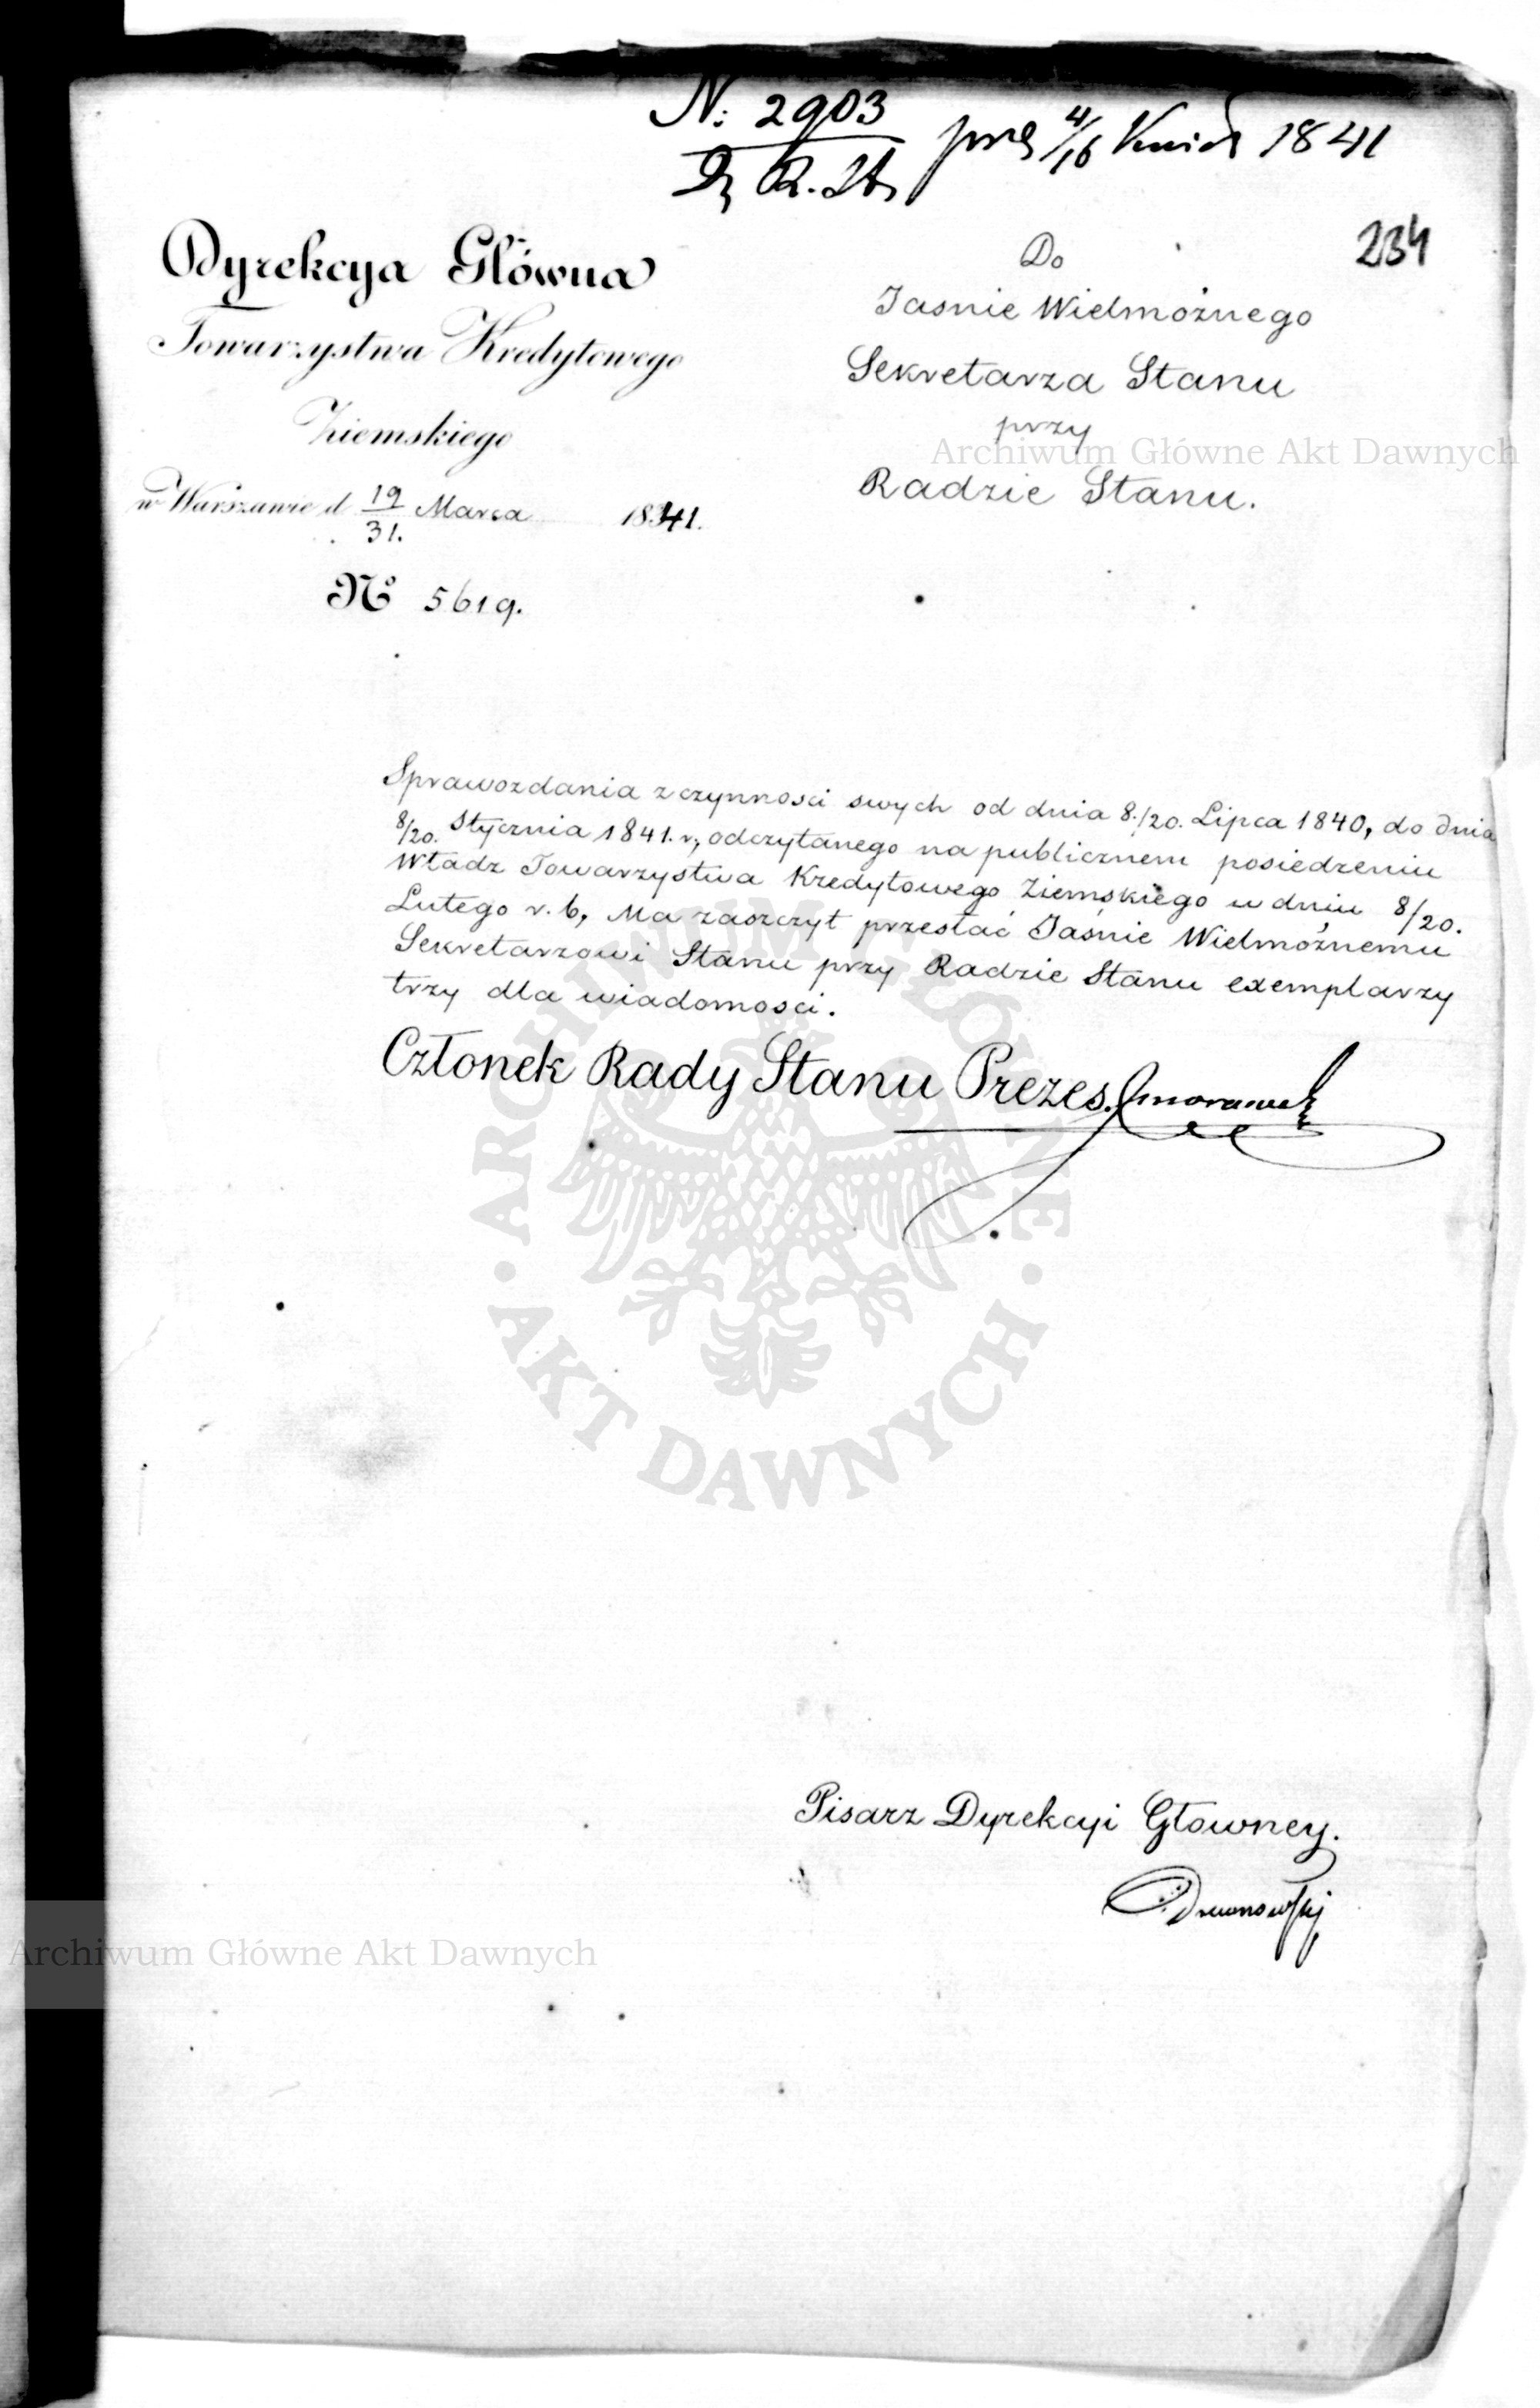 N: 2903
R. St.
4/16 1841
234
Dyrekcya Główna
Towarzystwa Kredytowego
Ziemskiego
w Warszawie d 19/31. Marca 1841.
No 5619.
Do
Jasnie Wielmożnego
Sekretarza Stanu
przy
Radzie Stanu.
Archiwum Główne Akt Dawnych
Sprawozdania z czynnosci swych od dnia 8./20. Lipca 1840, do dnia
8/20. Stycznia 1841. r, odczytanego na publicznem posiedzeniu
Władz Towarzystwa Kredytowego Ziemskiego w dniu 8/20.
Lutego r. b, Ma zaszczyt przesłać Jaśnie Wielmożnemu
Sekretarzowi Stanu przy Radzie Stanu exemplarzy
trzy dla wiadomosci.
Członek Rady Stanu Prezes.
ARCHIWUM GŁÓWNE
AKT DAWNYCH
Pisarz Dyrekcyi Głowney.
Archiwum Główne Akt Dawnych